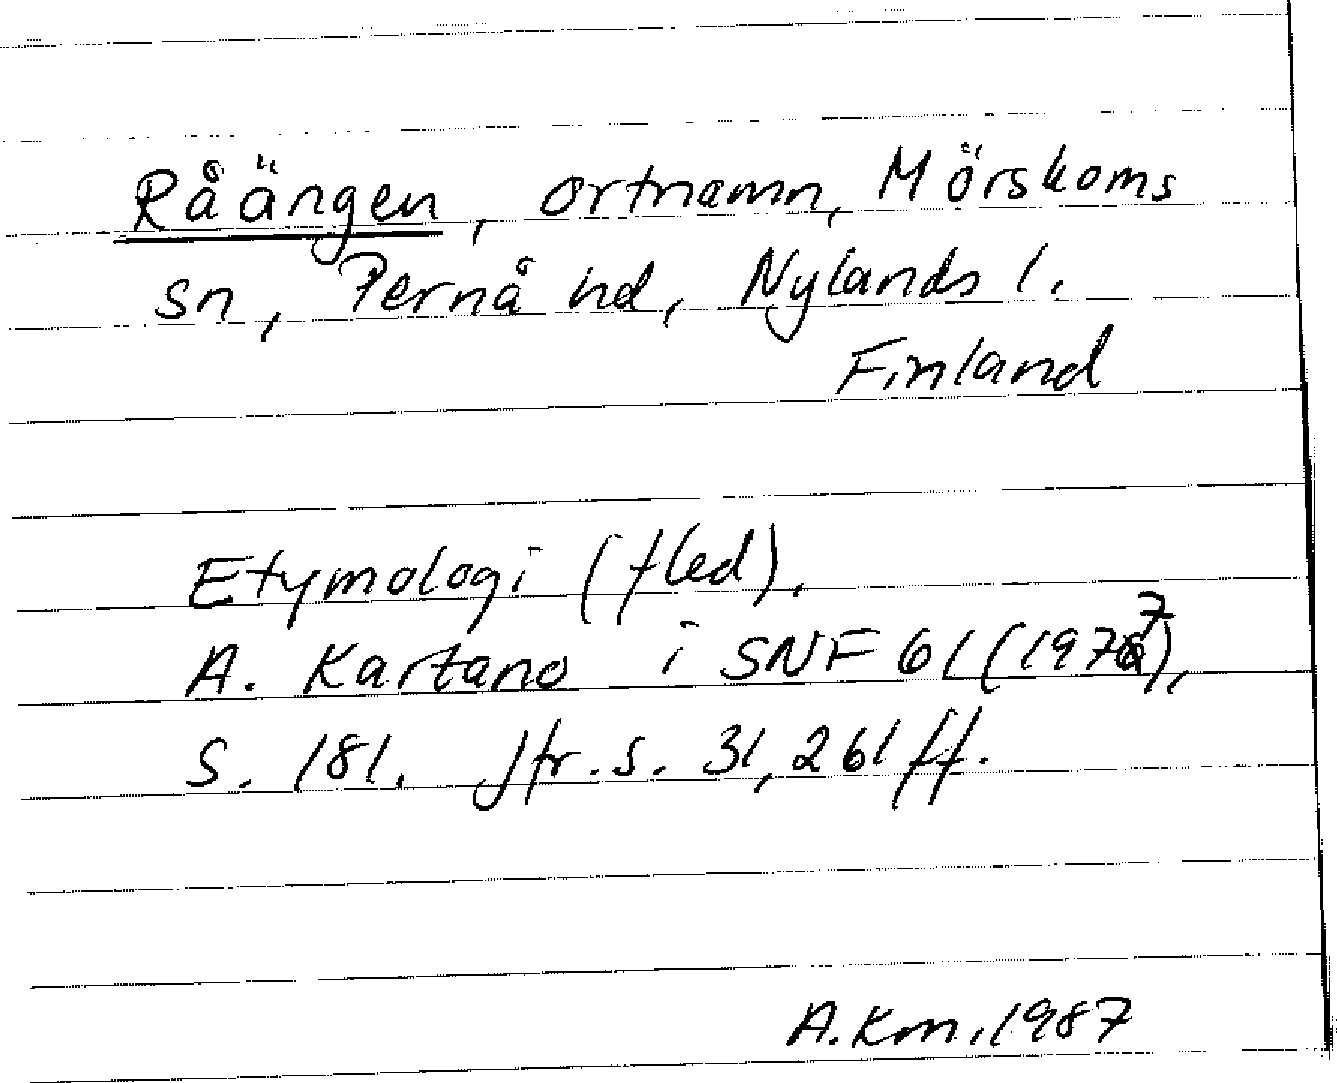 Råängen, ortnamn, Mörskoms
sn, Pernå hd, Nylands l.
Finland
Etymologi (fled).
A. Kartano i SNF 61 (1977),
S. 181. Jfr. s. 31, 261 ff.
A. Km. 1987